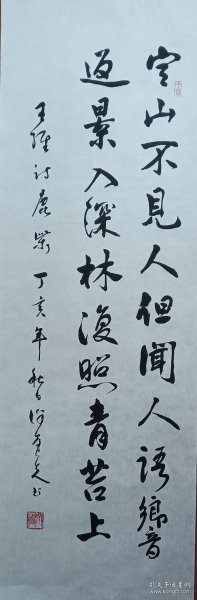 空山不見人但聞人語響
返景入深林復照青苔上
王維詩鹿柴 丁亥年秋日
孔夫子旧书网